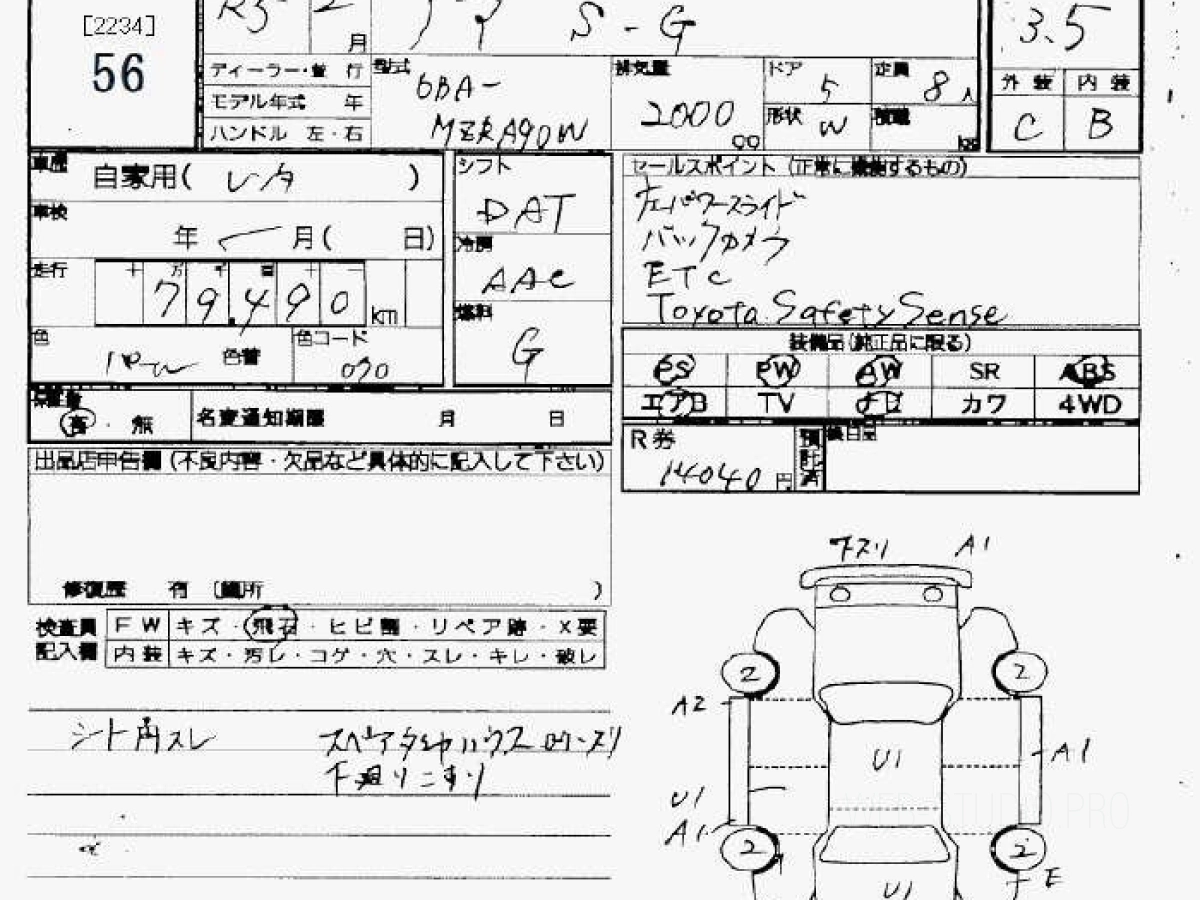 [2234]
56
R5 2 月
S - G
3.5
ディーラー・並 行
モデル年式 年
ハンドル 左・右
型式 6BA-
MZRA90W
排気量 2000 cc
ドア 5
定員 8 人
形状 W
積載 kg
外 装 内 装
C B
車歴 自家用( レンタ )
車検 年 月( 日)
走行 十 万 千 百 十 一
79,490 km
色 パール 色替
色コード 070
シフト
DAT
冷房
AAC
燃料
G
セールスポイント (正常に機能するもの)
左パワースライド
バックカメラ
ETC
Toyota Safety Sense
装備品(純正品に限る)
PS PW AW SR ABS
エアB TV ナビ カワ 4WD
保証書
有 ・ 無 名変通知期限 月 日
R券 14040 円 預託済 後日品
出品店申告欄(不良内容・欠品など具体的に記入して下さい)
修復歴 有 〔箇所 )
検査員 FW キズ・飛石・ヒビ割・リペア跡・X要
記入欄 内装 キズ・汚レ・コゲ・穴・スレ・キレ・破レ
シート角スレ
スペアタイヤハウス
下廻りこすり
下スリ A1
2 2
A2
U1 A1
U1
A1
2 2
U1 E